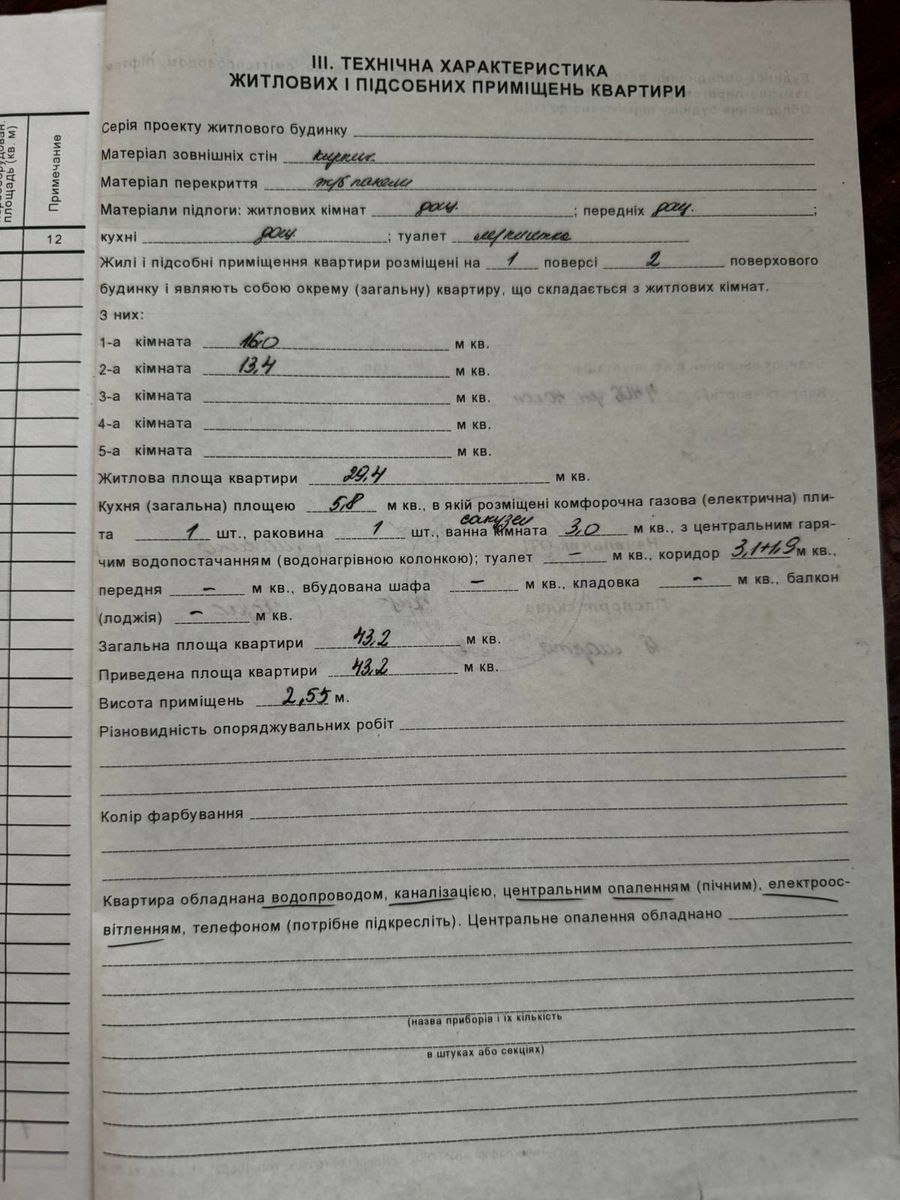 III. ТЕХНІЧНА ХАРАКТЕРИСТИКА
ЖИТЛОВИХ І ПІДСОБНИХ ПРИМІЩЕНЬ КВАРТИРИ
Серія проекту житлового будинку
Матеріал зовнішніх стін кирпич.
Матеріал перекриття ж/б панели
Матеріали підлоги: житлових кімнат дощ. ; передніх дощ. ;
кухні дощ. ; туалет
Жилі і підсобні приміщення квартири розміщені на 1 поверсі 2 поверхового
будинку і являють собою окрему (загальну) квартиру, що складається з житлових кімнат.
З них:
1-а кімната 16.0 м кв.
2-а кімната 13,4 м кв.
3-а кімната м кв.
4-а кімната м кв.
5-а кімната м кв.
Житлова площа квартири 29,4 м кв.
Кухня (загальна) площею 5,8 м кв., в якій розміщені комфорочна газова (електрична) пли-
санузел
та 1 шт., раковина 1 шт., ванна кімната 3,0 м кв., з центральним гаря-
чим водопостачанням (водонагрівною колонкою); туалет – м кв., коридор 3,1+1,9 м кв.,
передня – м кв., вбудована шафа – м кв., кладовка – м кв., балкон
(лоджія) – м кв.
Загальна площа квартири 43,2 м кв.
Приведена площа квартири 43.2 м кв.
Висота приміщень 2,55 м.
Різновидність опоряджувальних робіт
Колір фарбування
Квартира обладнана водопроводом, каналізацією, центральним опаленням (пічним), електроос-
вітленням, телефоном (потрібне підкресліть). Центральне опалення обладнано
(назва приборів і їх кількість
в штуках або секціях)
площадь (кв. м)
Примечание
12